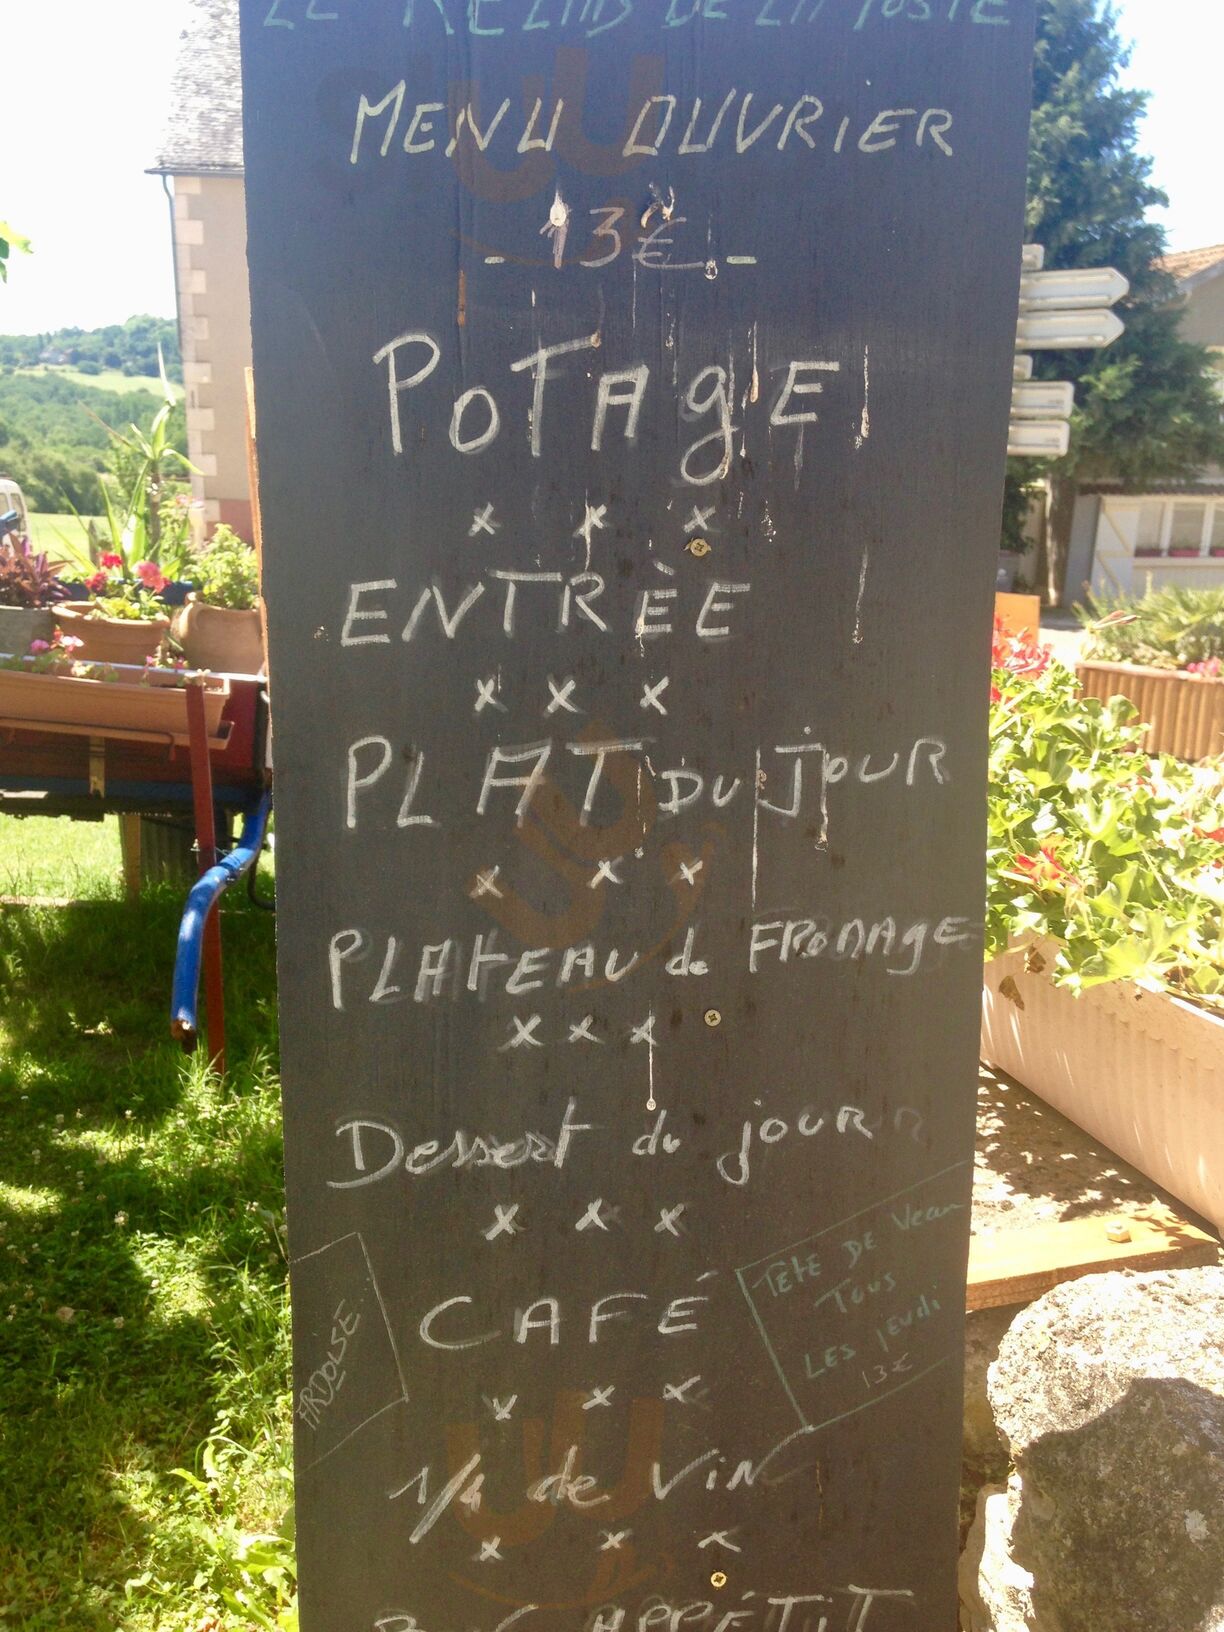 LE RELAIS DE LA POSTE
MENU OUVRIER
- 13€ -
POTAGE
x x x
ENTRÈE
x x x
PLAT DU JOUR
x x x
PLATEAU de FROMAGE
x x x
Dessert du jour
x x x
CAFÉ
TETE DE Veau
TOUS
LES JEUdi
13€
ARDOISE
x x x
1/4 de ViN
x x x
APPÉTIT